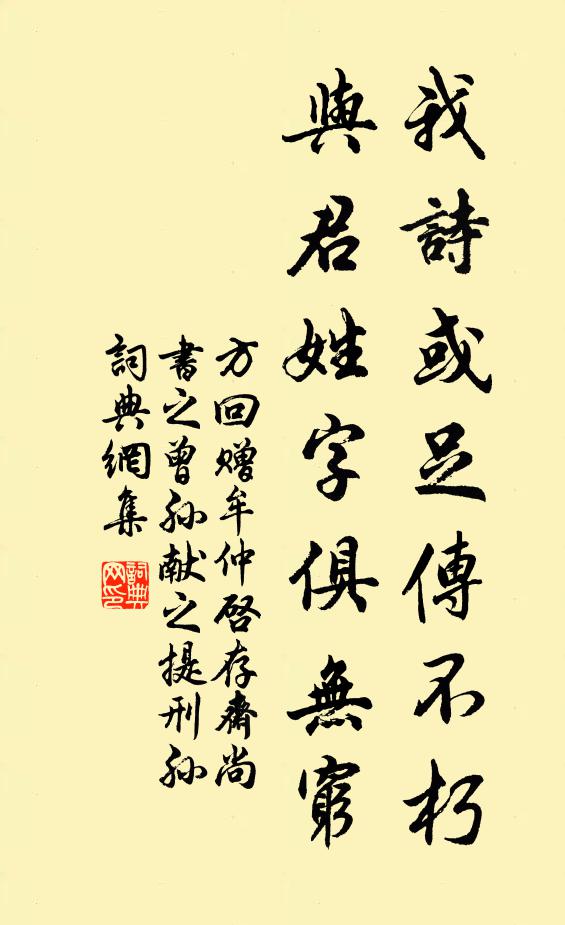 我詩或足傳不朽
與君姓字俱無窮
方回赠牟仲啓存齋尚
書之曾孙献之提刑孙
詞典網集
詞典网印